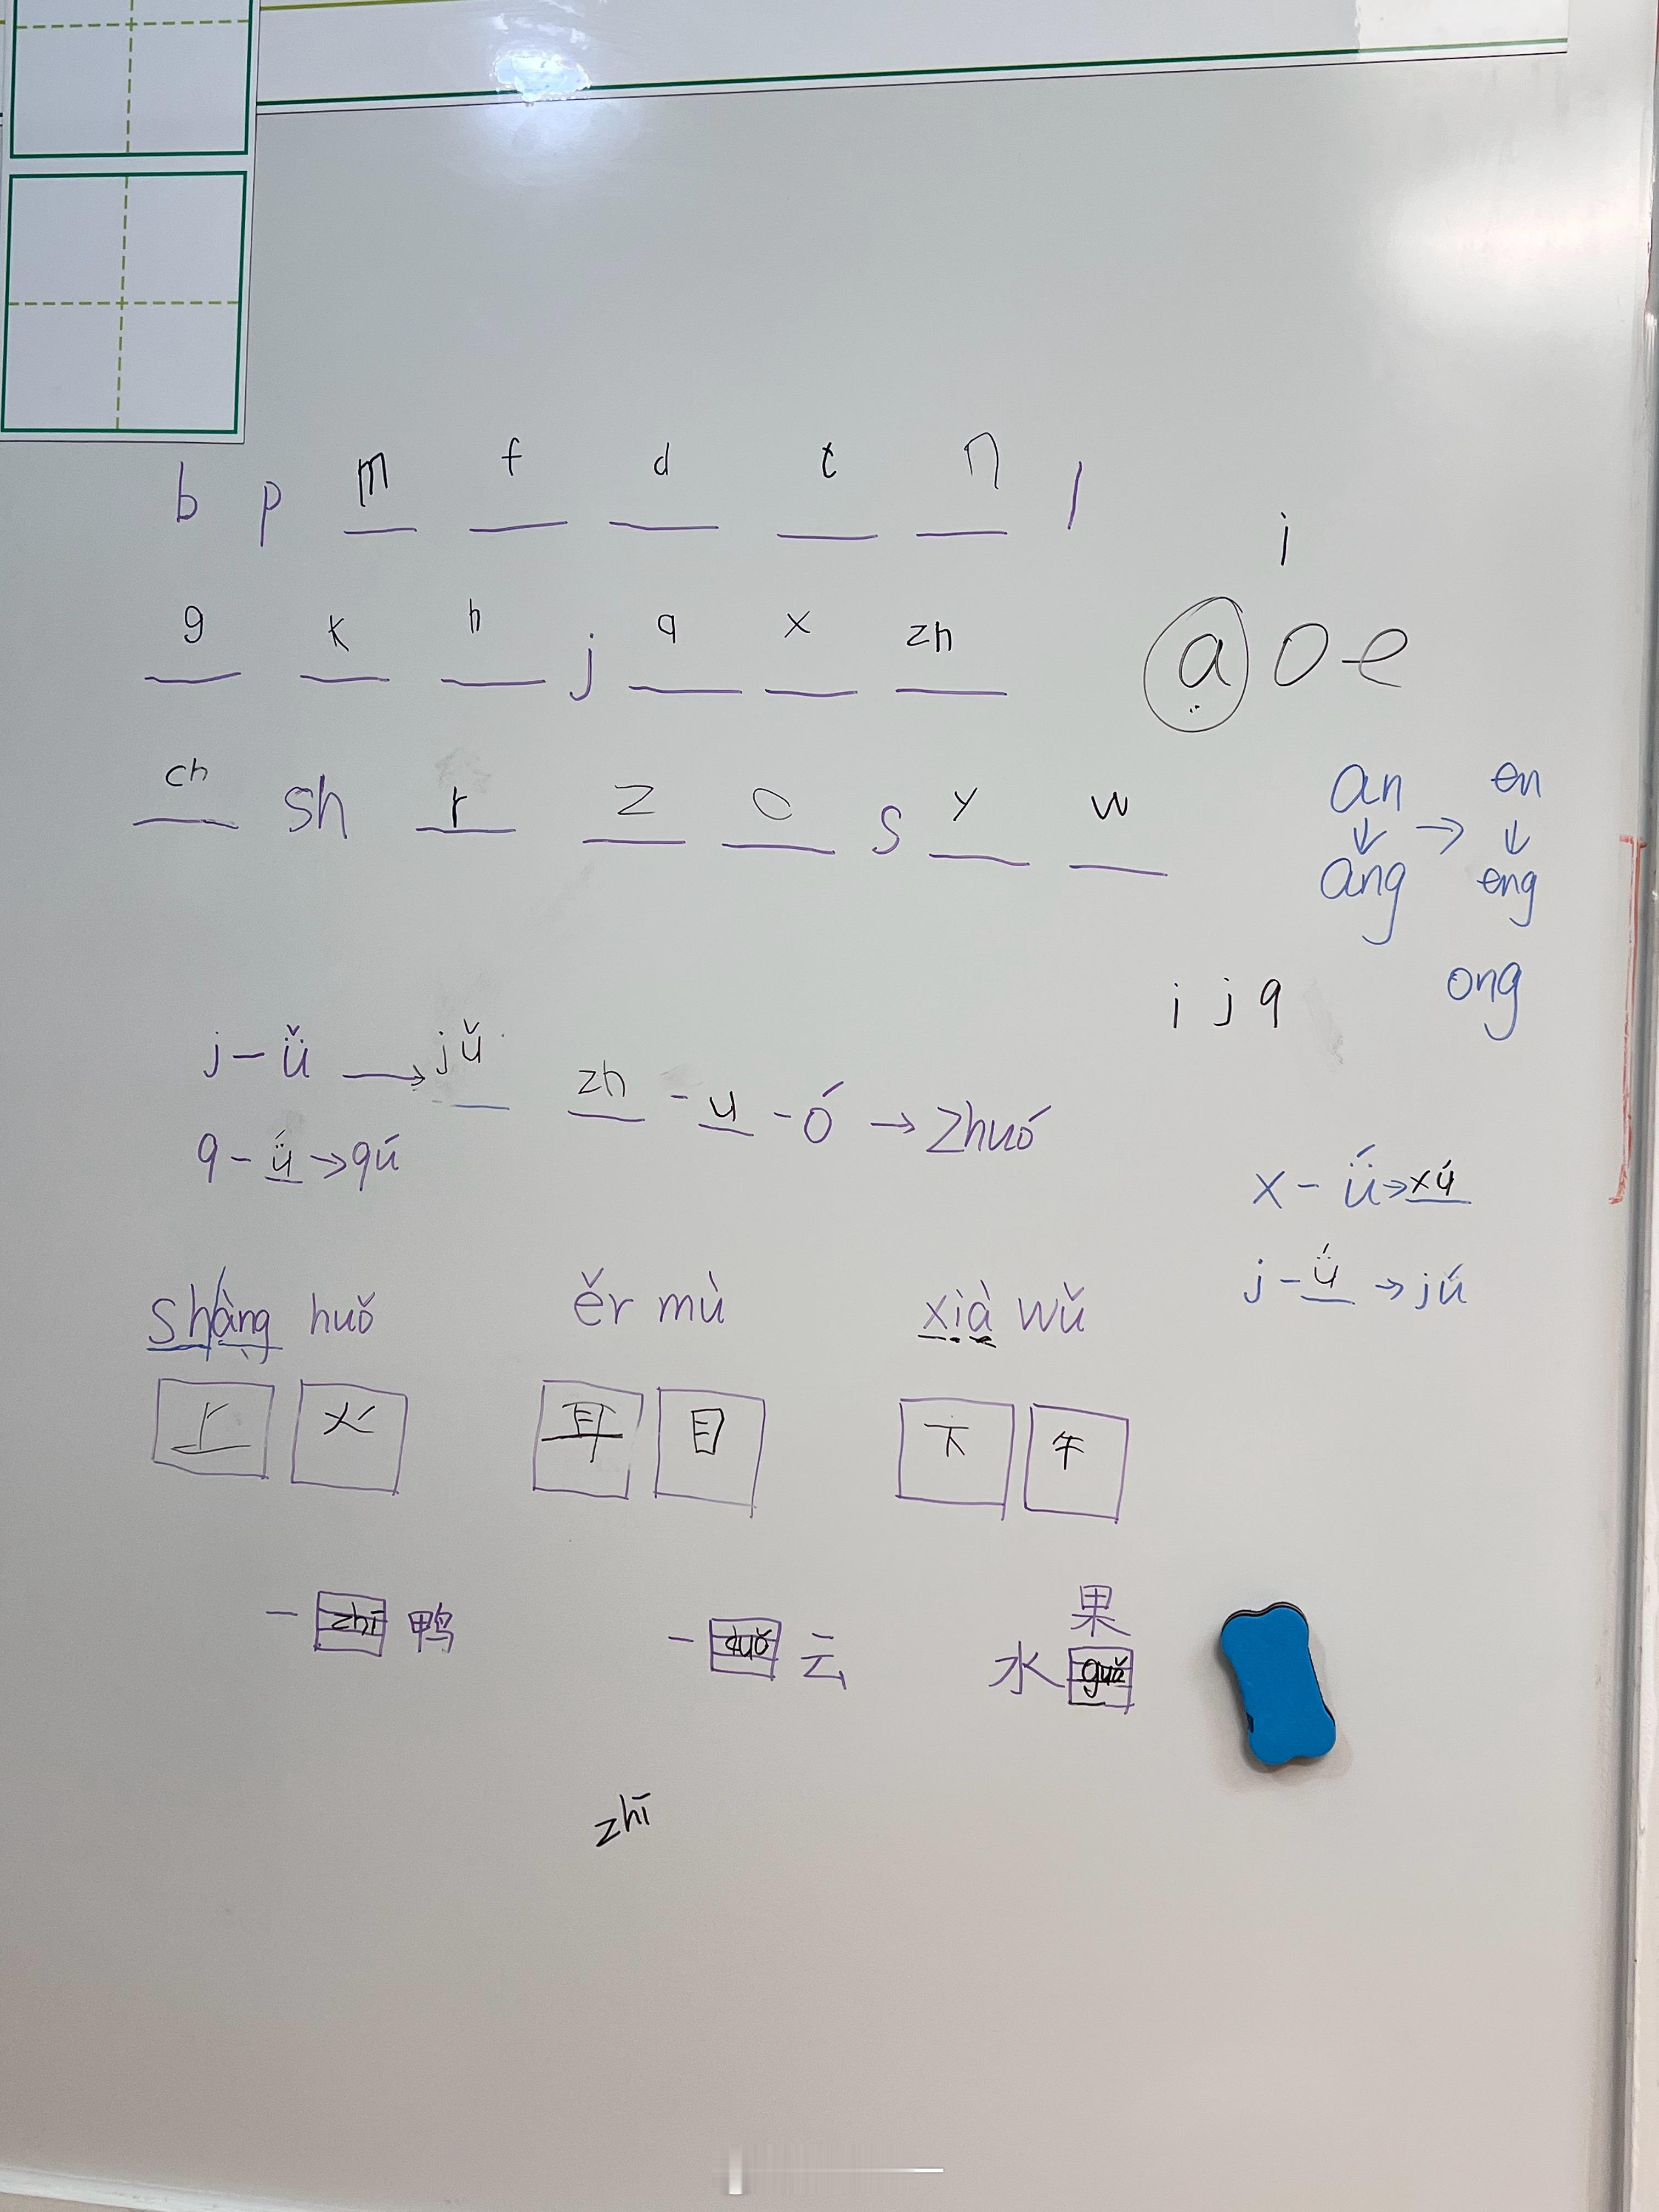 b p m f d t n l
i
g k h j q x zh
a o e
ch sh r z c s y w
an → en
↓ ↓
ang eng
i j q
ong
j - ǚ → jǔ
zh - u - ó → zhuó
q - ǘ → qú
x - ǘ → xú
j - ǘ → jú
shàng huǒ ěr mù xià wǔ
上 火 耳 目 下 午
一 zhī 鸭 一 duǒ 云
果
水 guǒ
zhī